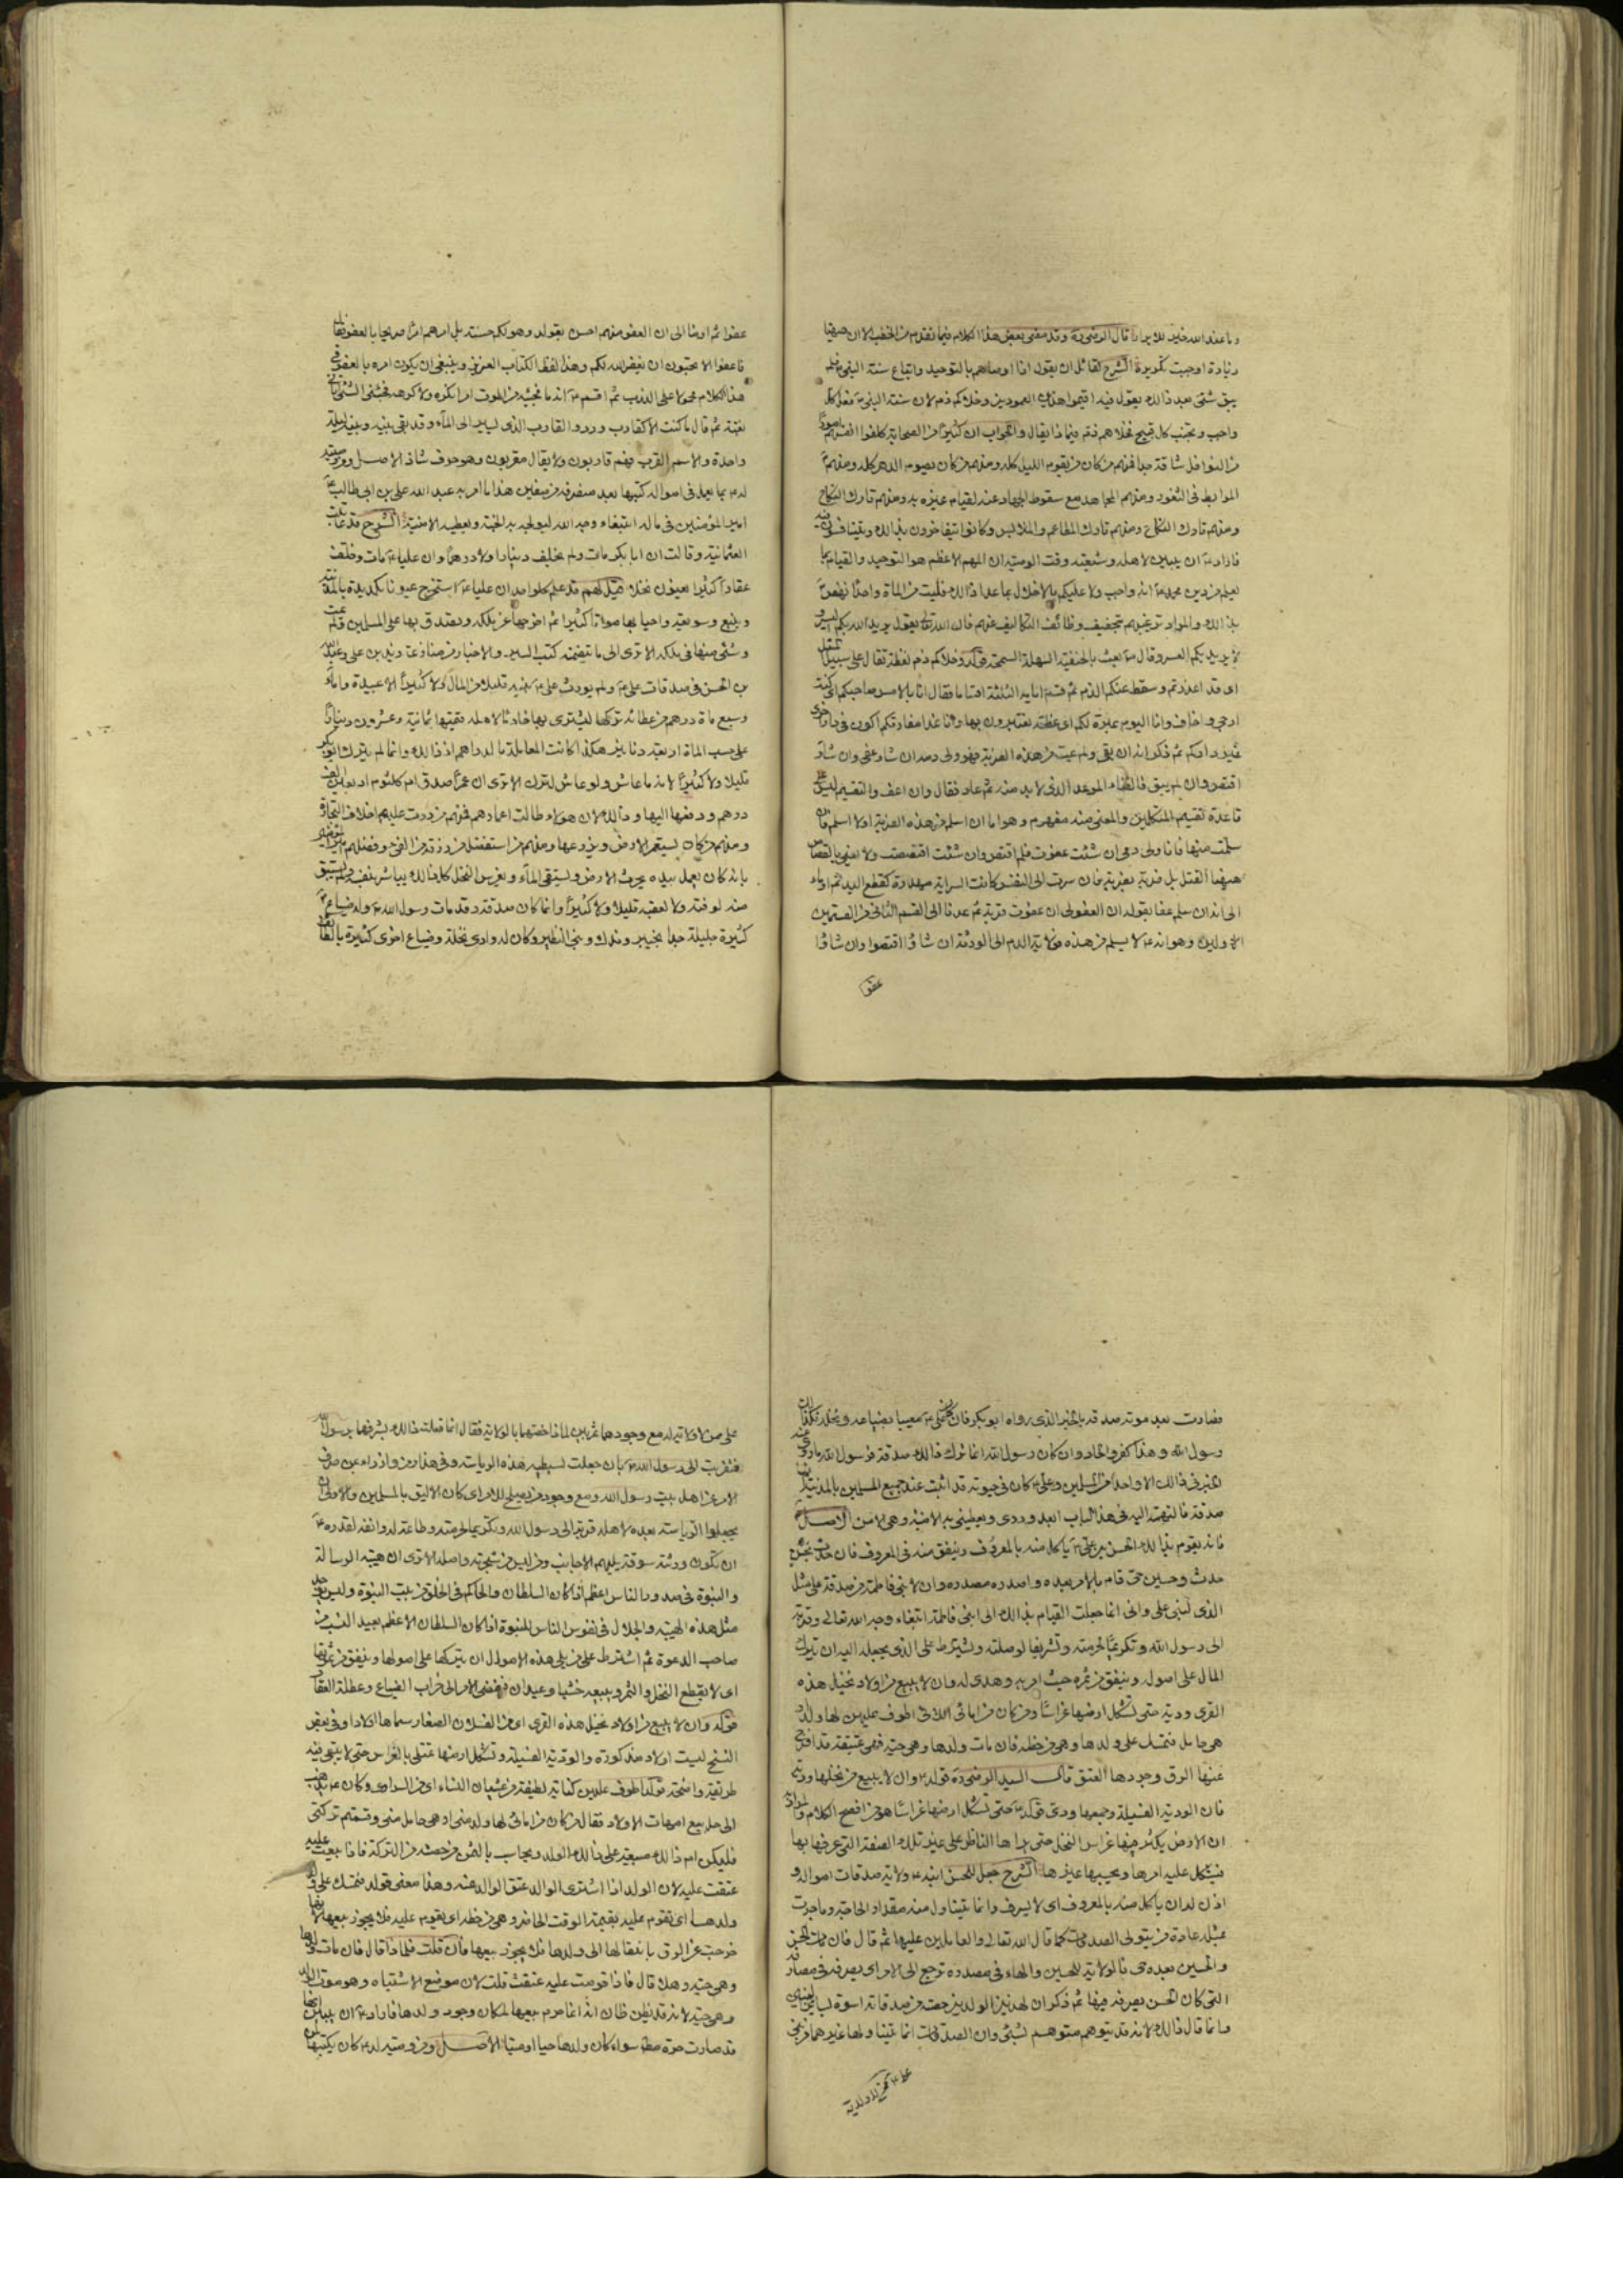 وما عند الله خير للابرار قال الرضى ره وقد مضى بعض هذا الكلام فيما تقدم من الخطب الا ان ههنا
زيادة اوجبت تكريره الشرح لقائل ان يقول اذا اوصاهم بالتوحيد واتباع سنة النبى ص فلم
يبق شئ بعد ذالك يقول فيه اقيموا هذين العمودين وخلاكم ذم لان سنة النبى ص فعل كل
واجب وتجنب كل قبيح فخلاهم ذم فماذا يقال والجواب ان كثيرًا من الصحابة كلفوا انفسهم امورًا
من النوافل شاقة جدا فمنهم من كان يقوم الليل كله ومنهم من كان يصوم الدهر كله ومنهم
المرابط فى الثغور ومنهم المجاهد مع سقوط الجهاد عنه لقيام غيره به ومنهم تارك النكاح
ومنهم تارك النكاح ومنهم تارك المطاعم والملابس وكانوا يتفاخرون بذالك ويتنافسون فيه
فاراد ع ان يبين لاهله وشيعته وقت الوصية ان المهم الاعظم هو التوحيد والقيام بما
يعلم من دين محمد ص انه واجب ولا عليكم بالاخلال بما عدا ذالك فليت من المائة واحدًا نهض
بذالك والمراد ترغيبهم بتخفيف وظائف التكاليف عنهم فان الله تعالى يقول يريد الله بكم اليسر و
لا يريد بكم العسر وقال ص بعثت بالحنيفية السهلة السمحة قوله وخلاكم ذم لفظة تقال على سبيل المثل
اى قد اعذرتم وسقط عنكم الذم ثم قسم ايامه الثلثة اقساما فقال انا بالامس صاحبكم اى كنت
ارجى واخاف وانا اليوم عبرة لكم اى عظة تعتبرون بها وانا غدا مفارقكم اكون فى دار اخرى
غير داركم ثم ذكر انه ان بقى ولم يمت من هذه الضربة فهو ولى دمه ان شاء عفى وان شاء
اقتص وان لم يبق فالفناء الموعد الذى لا بد منه ثم عاد فقال وان اعف والتقسيم ليس على
قاعدة تقسيم المتكلمين والمعنى منه مفهوم وهو اما ان اسلم من هذه الضربة او لا اسلم فان
سلمت منها فانا ولى دمى ان شئت عفوت فلم اقتص وان شئت اقتصصت ولا اعنى بالقصاص
ههنا القتل بل ضربة بضربة فان سرت الى النفس كانت السراية مهدرة كقطع اليد ثم اوماء
الى انه ان سلم عفا بقوله ان العفو لى ان عفوت قربة ثم عدنا الى القسم الثانى من القسمين
الاولين وهو انه ع لا يسلم من هذه فولاية الدم الى الورثة ان شاؤا اقتصوا وان شاؤا
عفوا
عفوا ثم اومأ الى ان العفو منهم احسن بقوله وهو لكم حسنة بل امرهم امرًا صريحا بالعفو فقال
فاعفوا الا تحبون ان يغفر الله لكم وهذا لفظ الكتاب العزيز وينبغى ان يكون امره بالعفو فى
هذا الكلام محمولا على الندب ثم اقسم ع انه ما فجئه من الموت امر انكره ولا كرهه فجئنى الشئ اتانى
بغتة ثم قال ما كنت الا كقارب ورد والقارب الذى يسير الى الماء وقد بقى بينه وبينه ليلة
واحدة والاسم القرب فهم قاربون ولا يقال مقربون وهو حرف شاذ الاصل ومن وصية
له ع بما يعمل فى امواله كتبها بعد منصرفه من صفين هذا ما امر به عبد الله على بن ابى طالب ع
امير المؤمنين فى ماله ابتغاء وجه الله ليولجه به الجنة ويعطيه الامنية الشرح قد عابت
العثمانية وقالت ان ابا بكر مات ولم يخلف دينارا ولا درهمًا وان عليا ع مات وخلف
عقارًا كثيرا يعنون نخلا قيل لهم قد علم كل احد ان عليا ع استخرج عيونا بكد يده بالمدينة
وينبع وسويعة واحيا بها مواتا كثيرا ثم اخرجها عن ملكه وتصدق بها على المسلمين ولم يمت
وشئ منها فى ملكه الا ترى الى ما يتضمنه كتب السير والاخبار من منازعة زيد بن على وعبد الله
بن الحسن فى صدقات على ع ولم يورث على ع بنيه قليلا من المال ولا كثيرًا الا عبيده واماءه
وسبع مأة درهم من عطائه تركها ليشترى بها خادما لاهله قيمتها ثمانية وعشرون دينارًا
على حسب المأة اربعة دنانير هكذا كانت المعاملة بالدراهم اذ ذالك وانما لم يترك ابو بكر
قليلا ولا كثيرًا لانه ما عاش ولو عاش لترك الا ترى ان عمر اصدق ام كلثوم اربعين الف
درهم ودفعها اليها وذالك لان هولاء طالت اعمارهم فمنهم من درت عليهم اخلاف التجارة
ومنهم من كان يستعمر الارض ويزرعها ومنهم من استفضل من رزقه من الفئ وفضلهم امير المؤمنين
بانه كان يعمل بيده يحرث الارض ويستقى الماء ويغرس النخل كل ذالك يباشر بنفسه ولم يستبق
منه لوقته ولا لعقبه قليلا ولا كثيرًا وانما كان صدقة وقد مات رسول الله ص وله ضياع
كثيرة جليلة جدا بخيبر وفدك وبنى النظير وكان له وادى نخلة وضياع اخرى كثيرة بالطائف
فصارت بعد موته صدقة بالخبر الذى رواه ابو بكر فان كان على ع معيبا بضياعه ونخله فكذالك
رسول الله وهذا كفر والحاد وان كان رسول الله انما ترك ذالك صدقة فرسول الله ما روى عنه
الخبر فى ذالك الا واحد من المسلمين وعلى ع كان فى حيوته قد اثبت عند جميع المسلمين بالمدينة انها
صدقة فالتهمة اليه فى هذا الباب ابعد وروى ويعطينى به الامنة وهى الامن الاصل
فانه يقوم بذالك الحسن بن على ع ياكل منه بالمعروف وينفق منه فى المعروف فان حدث بحسن
حدث وحسين حى قام بالامر بعده واصدره مصدره وان لابنى فاطمة من صدقة على مثل
الذى لبنى على وانى انما جعلت القيام بذالك الى ابنى فاطمة ابتغاء وجه الله تعالى وقربة
الى رسول الله وتكريمًا لحرمته وتشريفا لوصلته ويشترط على الذى يجعله اليه ان يترك
المال على اصوله وينفق من ثمره حيث امر به وهدى له وان لا يبيع من اولاد نخيل هذه
القرى ودية حتى تشكل ارضها غراسًا ومن كان من امائى اللاتى اطوف عليهن لها ولد او
هى حامل فتمسك على ولدها وهى من حظه فان مات ولدها وهى حية فهى عتيقة قد افرج
عنها الرق وحررها العتق قال السيد الرضى ره قوله ع وان لا يبيع من نخلها ودية
فان الودية الفسيلة وجمعها ودى قوله ع حتى تشكل ارضها غراسًا هو من افصح الكلام والمراد
ان الارض يكثر فيها غراس النخل حتى يراها الناظر على غير تلك الصفة التى عرفها بها
فيشكل عليه امرها ويحسبها غيرها الشرح جعل للحسن ابنه ع ولاية صدقات امواله و
اذن له ان ياكل منه بالمعروف اى لا يسرف وانما يتناول منه مقدار الحاجة وما جرت
بمثله عادة من يتولى الصدقات كما قال الله تعالى والعاملين عليها ثم قال فان مات الحسن
والحسين بعده حى فالولاية للحسين والهاء فى مصدره ترجع الى الامر اى يصرفه فى مصارفه
التى كان الحسن يصرفه فيها ثم ذكر ان لهذين الولدين حصة من صدقاته اسوة لسائر البنين
وانما قال ذالك لانه قد يتوهم متوهم لشئ وان الصدقات انما يتناولها غيرهما من بنى
على من لا ولاية له مع وجودهما ثم بين لماذا خصهما بالولاية فقال انما فعلت ذالك لشرفهما برسول الله
فتقربت الى رسول الله ص بان جعلت لسبطيه هذه الرياسة وفى هذا رمز وازراء بمن صرف
الامر عن اهل بيت رسول الله ومع وجود من يصلح للامر اى كان الاليق بالمسلمين والاولى ان
يجعلوا الرياسة بعده لاهله قربة الى رسول الله وتكريما لحرمته وطاعة له وانفة لقدره ص
ان تكون ورثته سوقة يليهم الاجانب ومن ليس من شجرته واصله الا ترى ان هيبة الرسالة
والنبوة فى صدور الناس اعظم اذا كان السلطان والحاكم فى الخلق من بيت النبوة وليس يوجد
مثل هذه الهيبة والجلال فى نفوس الناس للنبوة اذا كان السلطان الاعظم بعيد النسب من
صاحب الدعوة ثم اشترط على من يلى هذه الاموال ان يتركها على اصولها وينفق من ثمرتها
اى لا يقطع النخل والثمر ويبيعه خشبا وعيدان فيفضى الامر الى خراب الضياع وعطلة العقار
قوله وان لا يبيع من اولاد نخيل هذه القرى اى من الفسلان الصغار سماها اولادا وفى بعض
النسخ ليست اولاد مذكورة والودية الفسيلة وتشكل ارضها تمتلى بالغراس حتى لا يبقى فيه
طريقة واضحة قوله اطوف عليهن كناية لطيفة عن غشيان النساء اى من السرارى وكان ع يذهب
الى حل بيع امهات الاولاد فقال من كان من امائى لها ولد منى او هى حامل منى وقسمتم تركتى
فليكن ام ذالك مبيعة على ذالك الولد ويحاسب بالثمن من حصته من التركة فاذا بيعت عليه
عتقت عليه لان الولد اذا اشترى الوالد عتق الوالد عنه وهذا معنى قوله فتمسك على
ولدها اى تقوم عليه بقيمة الوقت الحاضر وهى من حظه اى يقوم عليه فلا يجوز بيعها لانها
خرجت عن الرق بانتقالها الى ولدها فلا يجوز بيعها فان قلت فلماذا قال فان مات ولدها
وهى حية وهلا قال فاذا قومت عليه عتقت قلت لان موضع الاشتباه وهو موت الولد
وهى حية لانه قد يظن ظان انه انما حرم بيعها لمكان وجود ولدها فاراد ع ان يبين انها
قد صارت حرة مطلقا سواء كان ولدها حيا او ميتا الاصل ومن وصية له ع كان يكتبها لمن